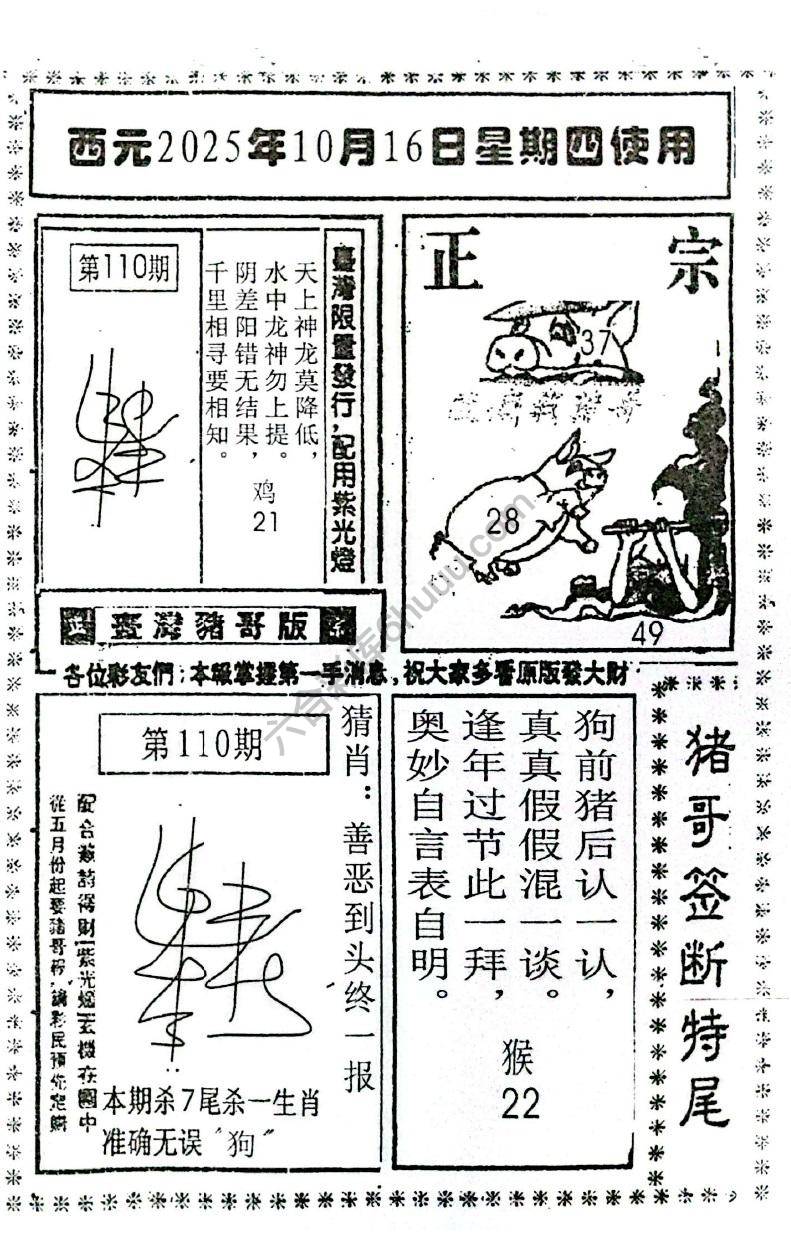 西元2025年10月16日星期四使用
第110期
臺灣限量發行，配用紫光燈
天上神龙莫降低，
水中龙神勿上提。
阴差阳错无结果，
千里相寻要相知。
鸡
21
正宗
37
28
49
臺灣豬哥版
各位彩友們：本報掌握第一手消息，祝大家多看原版發大財
第110期
猜肖：善恶到头终一报
配合籤詩得財紫光燈玄機在圖中
從五月份起要豬哥報，請彩民預先定購
本期杀7尾杀一生肖
准确无误“狗”
狗前猪后认一认，
真真假假混一谈。
逢年过节此一拜，
奥妙自言表自明。
猴
22
猪哥签断特尾
六合料库6huuu.com